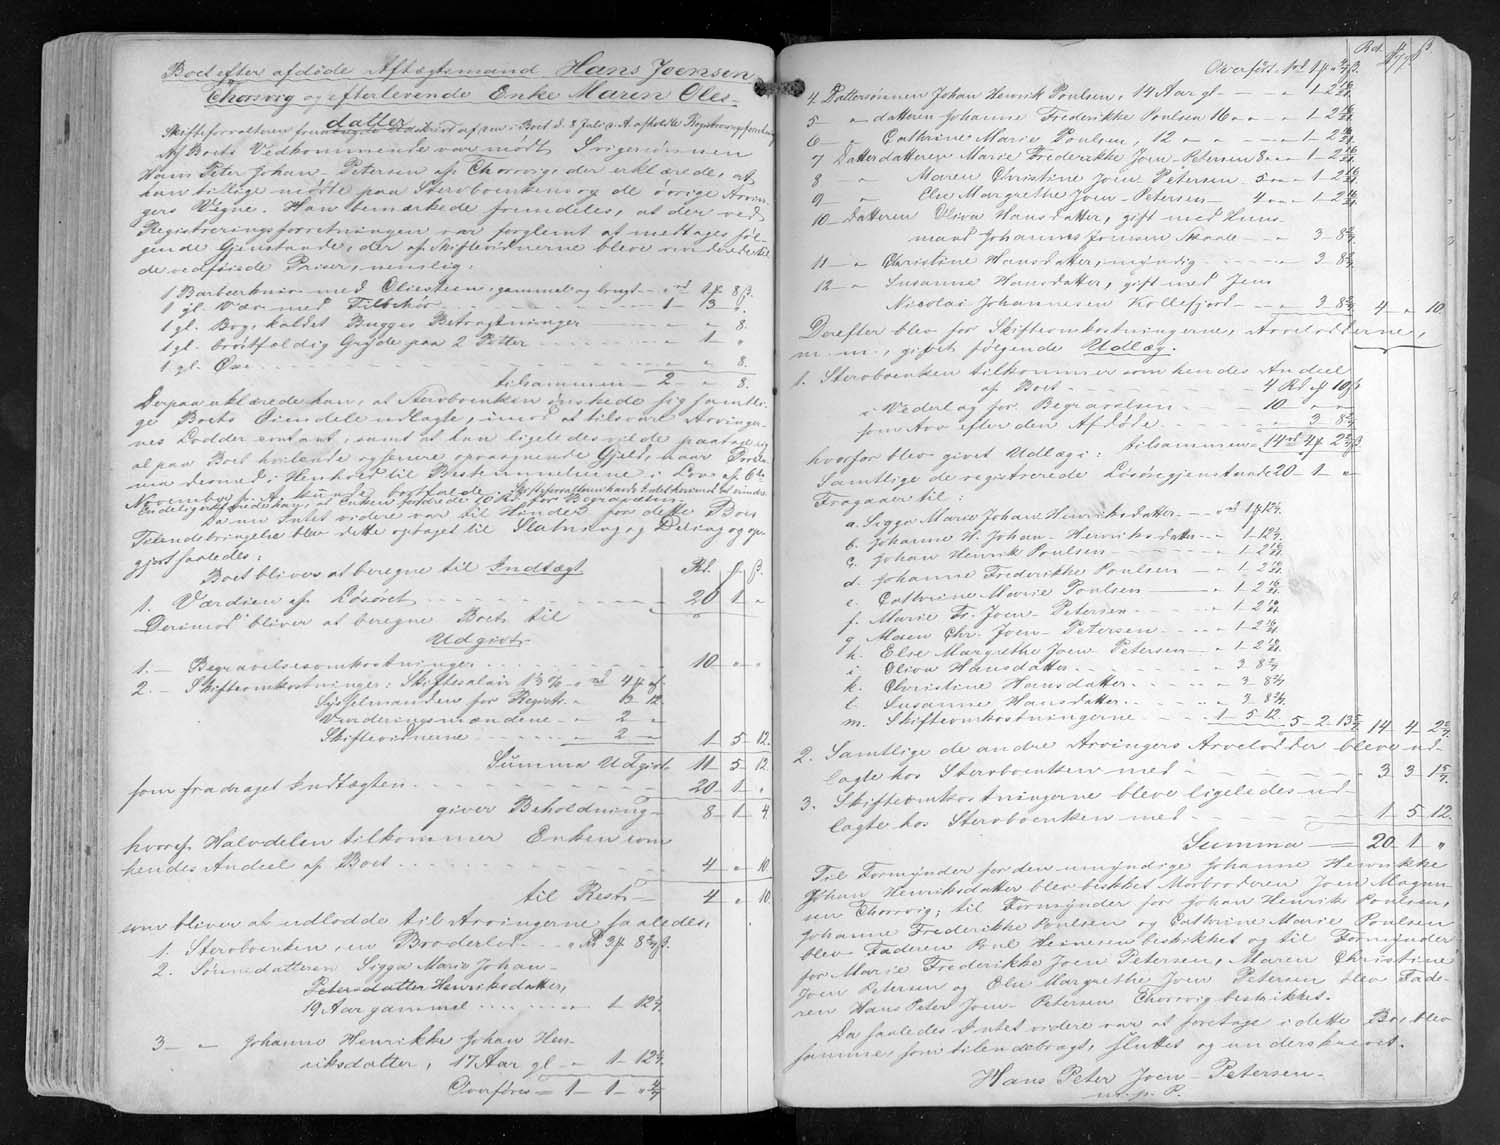 Boet efter afdøde Aftægtsmand Hans Joensen
Thorsvig og efterlevende Enke Maren Oles-
datter
Skifteforvalteren af Boet d. 8 Juli d. A. afholdte Registreringsforretning
Af Boets Vedkommende var mødt Svigersønnen
Hans Peter Johan-Petersen af Thorsvig, der erklærede, at
han tillige mødte paa Stervboenkens og de øvrige Arvin-
gers Vegne. Han bemærkede fremdeles, at der ved
Registreringsforretningen var forglemt at medtages føl-
gende Gjenstande, der af Skiftevidnerne bleve vurderede til
de vedføiede Priser, nemlig:
1 Barbeerkniv med Oliesteen, gammel og brugt - " rd 1 ƒ 8 β.
1 gl. Væv med Tilbehør - 1 - 3 - ".
1 gl. Bog, kaldet Bugges Betragtninger - " - " - 8.
1 gl. brøstfældig Gryde paa 2 Potter - " - 1 - "
1 gl. Øxe - " - " - 8.
tilsammen - 2 - " - 8.
Derpaa erklærede han, at Stervboenken ønskede sig samtli-
ge Boets Eiendele udlagte, imod at tilsvare Arvinger-
nes Lodder contant, samt at hun ligeledes vilde paatage sig
al paa Boet hvilende og senere opvaagnende Gjeld, naar Procla-
ma dermed i Henhold til Bestemmelserne i Lov af 6te
November f. A. kunde bortfalde. Skifteforvalteren havde Intet herimod at erindre
Endelig Enken fordrede 10 Rd. for Begravelsen.
Da nu Intet videre var til Hinder for dette Boes
Tilendebringelse blev dette optaget til Slutning og Deling og op-
gjort saaledes:
Boet bliver at beregne til Indtægt Rd. ƒ β.
1. Værdien af Løsøret 20 1 "
Derimod bliver at beregne Boets til
Udgivt
1. - Begravelsesomkostninger 10 " "
2. - Skifteomkostninger: Skiftesalair 1 3/% - " rd 4 ƒ "
Sysselmanden for Registr. - " 3 - 12
Vurderingsmændene - " - 2 - "
Skiftevidnerne - " - 2 - " 1 - 5 - 12.
Summa Udgivt 11 - 5 - 12
som fradraget Indtægten 20 - 1 - "
giver Beholdning - 8 - 1 - 4.
hvoraf Halvdelen tilkommer Enken som
hendes Andeel af Boet 4 " 10.
til Rest - 4 " 10.
som bliver at udlodde til Arvingerne saaledes:
1. Stervboenken, en Broderlod - " Rd 3 ƒ 8 2/7 β.
2. Sønnedatteren Sigga Marie Johan-
Petersdatter Henriksdatter,
19 Aar gammel 1 - 12 4/7.
3 - " Johanne Henrikke Johan Hen-
riksdatter, 17 Aar gl - " - 1 - 12 4/7.
Overføres = 1 - 1 - " 3/7
Rd. ƒ β.
Overført 1 rd 1 ƒ " 3/7 β.
4 Dattersønnen Johan Henrik Poulsen, 14 Aar gl - " - 1 - 2 16/21
5 - " datteren Johanne Frederikke Poulsen 16 " - " - 1 - 2 16/21
6 - Cathrine Marie Poulsen, 12 " - " - 1 - 2 16/21
7 Datterdatteren Marie Frederikke Joen-Petersen 8 " - " 1 - 2 16/21
8 - " Maren Christine Joen Petersen - 5 " - " 1 - 2 16/21
9 - " Else Margrethe Joen-Petersen - 4 " - " 1 - 2 16/21
10 - Datteren Oliva Hansdatter, gift med Huus-
mand Johannes Joensen Skaale - " - 3 - 8 2/7.
11 - " Christine Hansdatter, myndig - " - 3 - 8 2/7.
12 - " Susanne Hansdatter, gift med Jens
Nicolai Johannesen Kollefjord - " - 3 - 8 2/7 4 - " 10.
Derefter blev for Skifteomkostningerne, Arvelodderne,
m. m., gjort følgende Udlæg.
1. Stervboenken tilkommer som hendes Andeel
af Boet 4 Rd " ƒ 10 β
i Vederlag for Begravelsen 10 - " - "
som Arv efter den Afdøde " 3 8 2/7
tilsammen 14 rd 4 ƒ 2 2/7 β
hvorfor blev givet Udlæg i:
Samtlige de registrerede Løsøregjenstande 20 - 1 - "
Fragaaer til:
a. Sigga Marie Johan Henriksdatter - " rd 1 ƒ 12 4/7.
b. Johanne H. Johan-Henriksdatter - " 1 - 12 4/7.
c. Johan Henrik Poulsen - " 1 - 2 16/21
d. Johanne Frederikke Poulsen - " 1 - 2 16/21
e. Cathrine Marie Poulsen - " 1 - 2 16/21
f. Marie Fr. Joen-Petersen - " 1 - 2 16/21
g. Maren Chr. Joen-Petersen - " 1 - 2 16/21
h. Else Margrethe Joen-Petersen - " 1 - 2 16/21
i. Oliva Hansdatter " 3 - 8 2/7.
k. Christine Hansdatter " 3 - 8 2/7.
l. Susanne Hansdatter " 3 - 8 2/7.
m. Skifteomkostningerne 1 - 5 - 12 5 - 2 - 13 5/7 14 - 4 - 2 2/7
2. Samtlige de andre Arvingers Arvelodder bleve ud-
lagte hos Stervboenken med 3 3 1 5/7.
3. Skifteomkostningerne bleve ligeledes ud-
lagte hos Stervboenken med 1 5 12.
Summa 20 1 "
Til Formynder for den umyndige Johanne Henrikke
Johan Henriksdatter blev beskikket Morbroderen Joen Magnu-
sen Thorsvig; til Formynder for Johan Henrik Poulsen,
Johanne Frederikke Poulsen og Cathrine Marie Poulsen
blev Faderen Poul Heinesen beskikket og til Formynder
for Marie Frederikke Joen Petersen, Maren Christine
Joen Petersen og Else Margrethe Joen Petersen blev Fade-
ren Hans Peter Joen-Petersen Thorsvig beskikket.
Da saaledes Intet videre var at foretage i dette Bo, blev
samme, som tilendebragt, sluttet og underskrevet.
Hans Peter Joen-Petersen-
m. p. P.